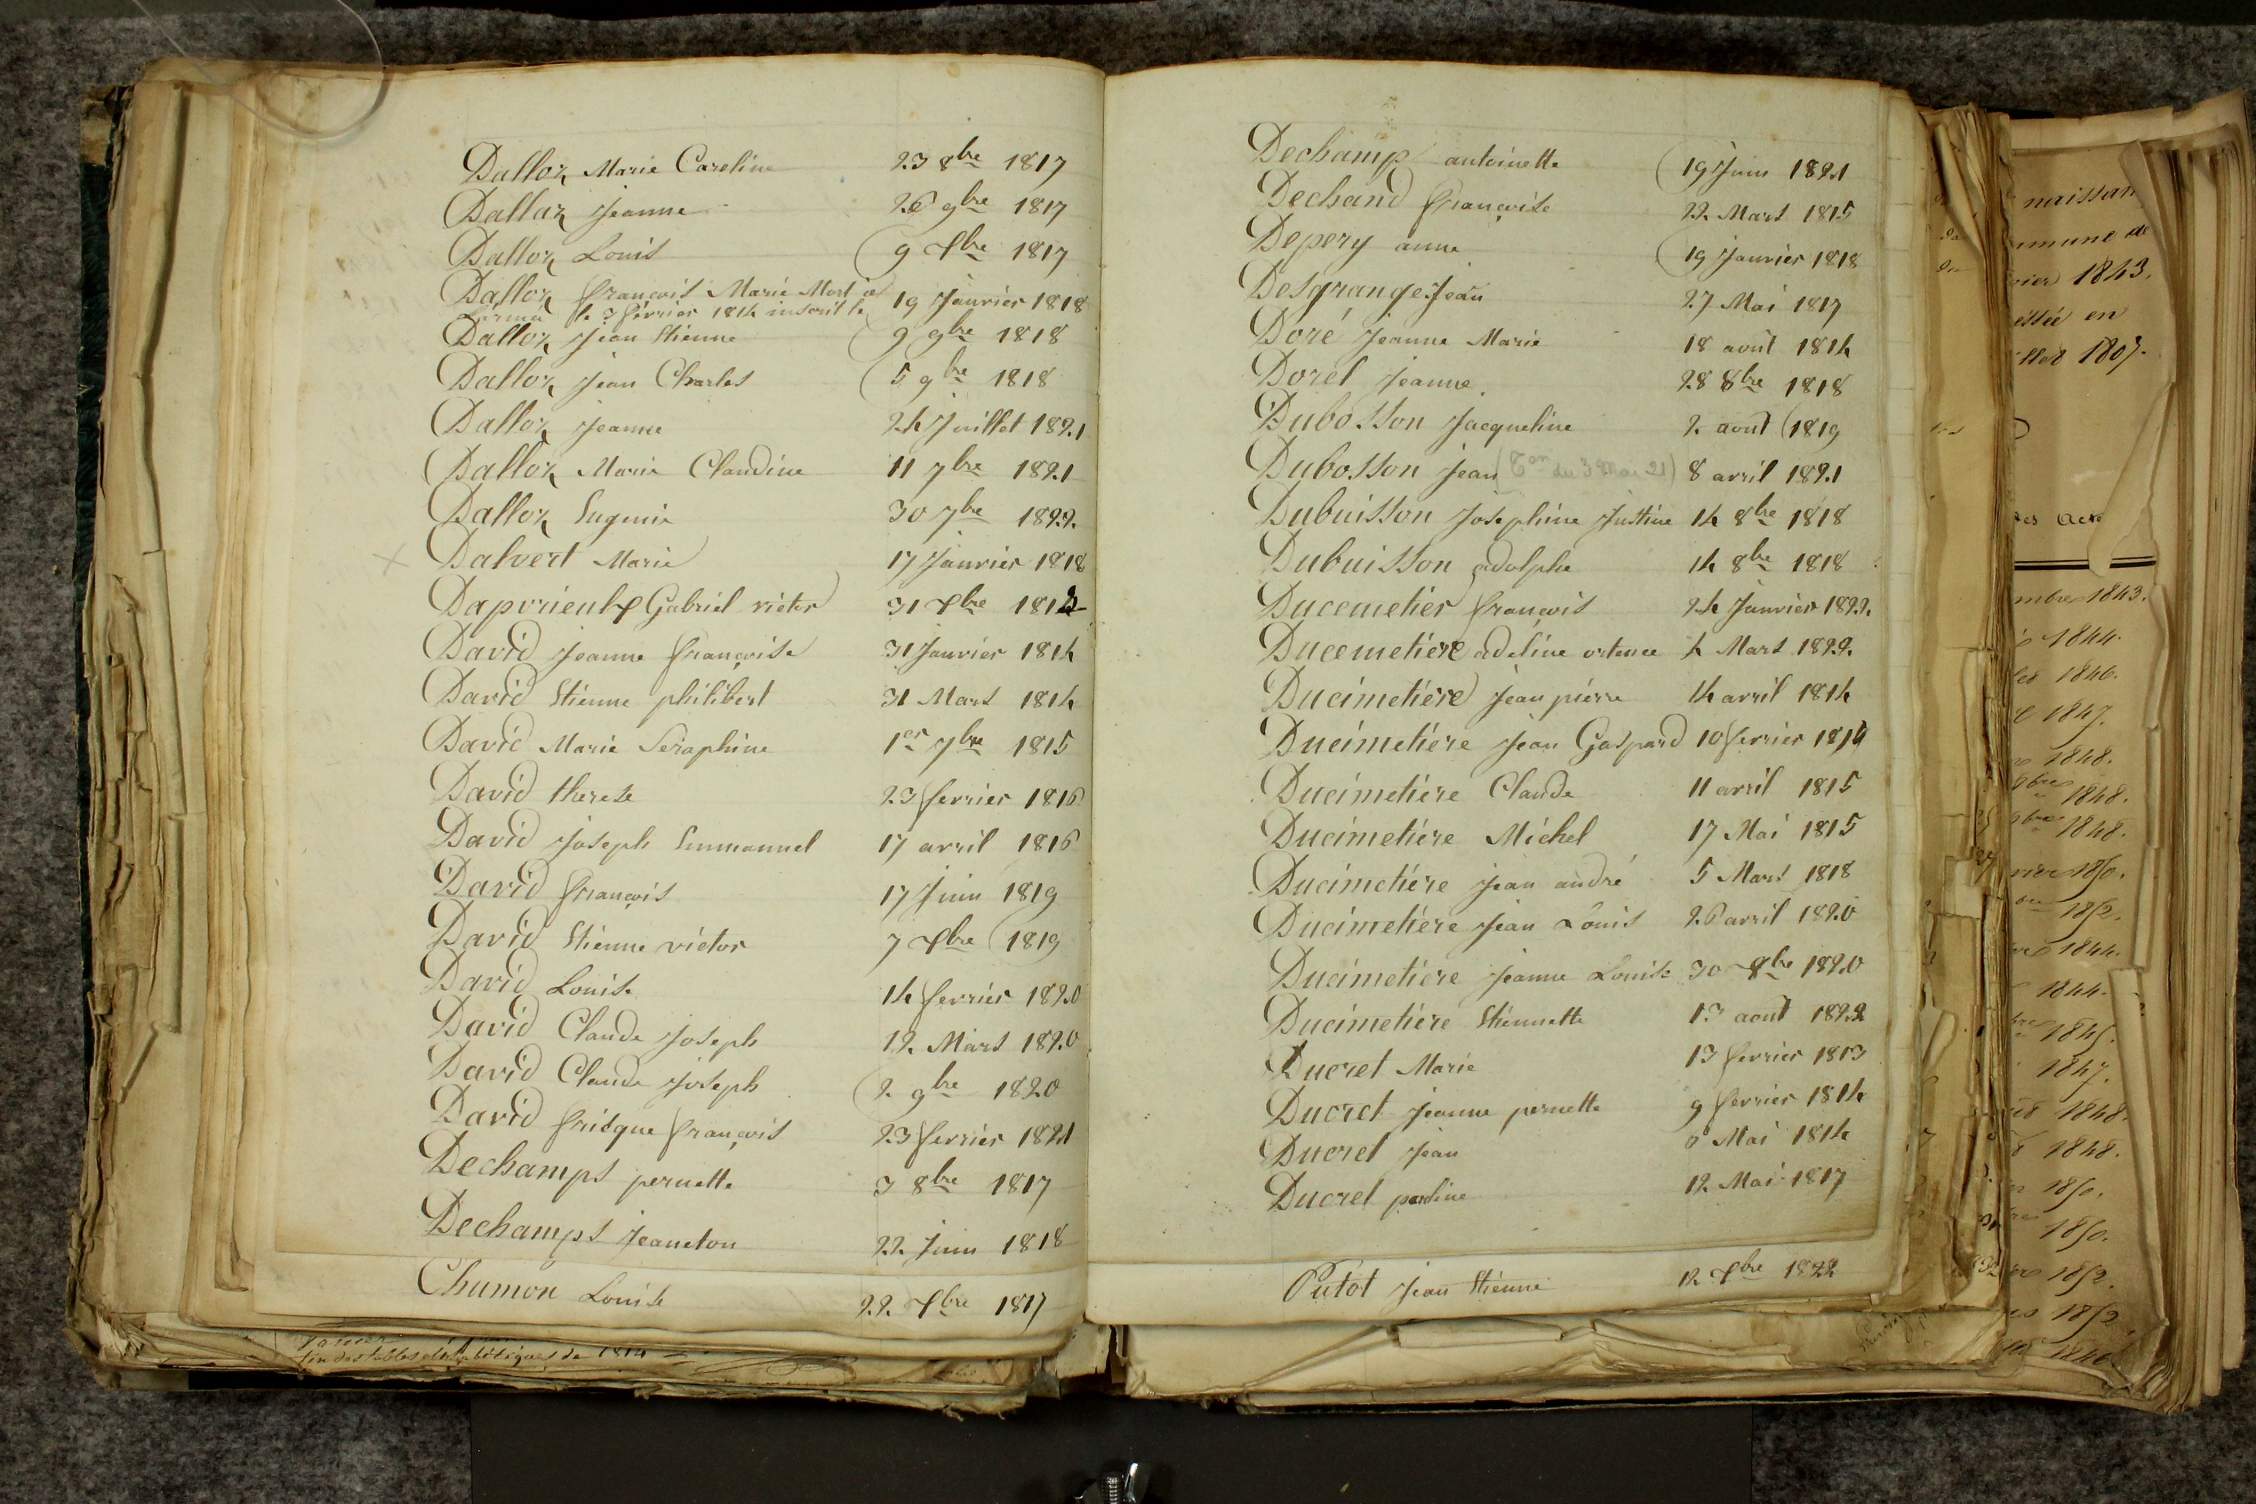 Dalloz Marie Caroline 23 8bre 1817
Dallaz Jeanne 26 9bre 1817
Dalloz Louis 9 Xbre 1817
Dalloz françois Marie Mort à 19 Janvier 1818
le 3 fevrier 1814 inscrit le
Dalloz Jean Etienne 9 9bre 1818
Dalloz Jean Charles 5 9bre 1818
Dalloz Jeanne 24 Juillet 1821
Dalloz Marie Claudine 11 7bre 1821
Dalloz Eugenie 30 7bre 1822
Dalvert Marie 17 Janvier 1818
Gabriel victor 31 Xbre
David Jeanne françoise 31 Janvier 1814
David Etienne philibert 31 Mars 1814
David Marie Seraphine 1er 7bre 1815
David therese 23 fevrier 1816
David Joseph Emmanuel 17 avril 1816
David françois 17 Juin 1819
David Etienne victor 7 Xbre 1819
David Louise 14 fevrier 1820
David Claude Joseph 12 Mars 1820
David Claude Joseph 2 9bre 1820
David frisque françois 23 fevrier 1821
Dechamps pernette 3 8bre 1817
Dechamps Jeaneton 22 Juin 1818
Chumon Louise 22 Xbre 1817
fin des tables alphabétiques de 1814
Dechamp antoinette 19 Juin 1821
Dechand françoise 22 Mars 1815
Depery anne 19 Janvier 1818
Desgrange Jean 27 Mai 1817
Doré Jeanne Marie 18 août 1814
Dorel Jeanne 28 8bre 1818
Dubosson Jacqueline 2 août 1819
Dubosson Jean (Ton du 3 Mai 21) 8 avril 1821
Dubuisson Josephine Justine 14 8bre 1818
Dubuisson adolphe 14 8bre 1818
Ducemetier françois 24 Janvier 1822
Ducemetiere adéline ortence 4 Mars 1822
Ducimetière Jean pierre 14 avril 1814
Ducimetière Jean Gaspard 10 fevrier
Ducimetière Claude 11 avril 1815
Ducimetière Michel 17 Mai 1815
Ducimetière Jean andré 5 Mars 1818
Ducimetière Jean Louis 26 avril 1820
Ducimetière Jeanne Louise 30 8bre 1820
Ducimetière Etiennette 13 août 1822
Ducret Marie 13 fevrier 1813
Ducret Jeanne pernette 9 fevrier 1814
Ducret Jean 8 Mai 1814
Ducret pauline 12 Mai 1817
Putot Jean Etienne 12 Xbre 1822
naissan
mmune de
vier 1843.
en
1807.
mbre 1843.
1844.
1846.
1847.
1848.
9bre 1848.
bre 1848.
vier 1850.
1852.
1844.
1844.
1845.
1847.
1848.
1848.
1850.
1850.
1852.
1852